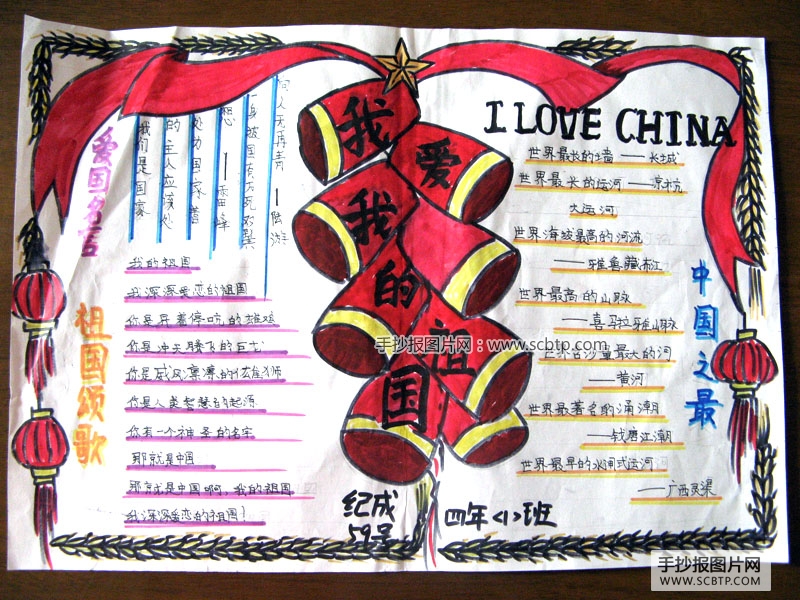 I LOVE CHINA
我爱我的祖国
爱国名言
我们是国家
的主人应该处
处为国家着
想
——雷锋
一身报国有万死双鬓
向人无再青——陆游
祖国颂歌
我的祖国
我深深爱恋的祖国
你是昂首高吭的雄鸡
你是冲天腾飞的巨龙
你是威风凛凛的
你是人类智慧的起源
你有一个神圣的名字
那就是中国
那就是中国啊，我的祖国
我深深爱恋的祖国！
中国之最
世界最长的墙——长城
世界最长的运河——京杭
大运河
世界海拔最高的河流
——雅鲁藏布江
世界最高的山脉
——喜马拉雅山脉
世界含沙量最大的河
——黄河
世界最著名的涌潮
——钱唐江潮
世界最早的水闸式运河
——广西灵渠
纪成
59号
四年<1>班
手抄报图片网：www.scbtp.com
手抄报图片网
WWW.SCBTP.COM